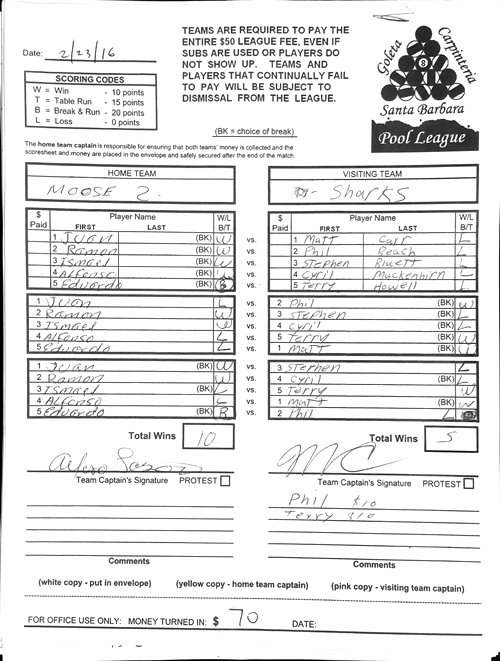 TEAMS ARE REQUIRED TO PAY THE
ENTIRE $50 LEAGUE FEE, EVEN IF
SUBS ARE USED OR PLAYERS DO
NOT SHOW UP. TEAMS AND
PLAYERS THAT CONTINUALLY FAIL
TO PAY WILL BE SUBJECT TO
DISMISSAL FROM THE LEAGUE.
Date: 2/23/16
SCORING CODES
W = Win - 10 points
T = Table Run - 15 points
B = Break & Run - 20 points
L = Loss - 0 points
(BK = choice of break)
Goleta
Carpinteria
8
Santa Barbara
Pool League
The home team captain is responsible for ensuring that both teams' money is collected and the
scoresheet and money are placed in the envelope and safely secured after the end of the match.
HOME TEAM
MOOSE 2.
VISITING TEAM
Sharks
$ Paid Player Name FIRST LAST W/L B/T
$ Paid Player Name FIRST LAST W/L B/T
1 Juan (BK) W vs. 1 Matt Carr L
2 Ramon (BK) W vs. 2 Phil Reach L
3 Ismael (BK) W vs. 3 Stephen L
4 Alfonso (BK) vs. 4 Cyril Muckenhirn L
5 Eduardo (BK) B vs. 5 Terry Howell L
1 Juan L vs. 2 Phil (BK) W
2 Ramon W vs. 3 Stephen (BK) L
3 Ismael W vs. 4 Cyril (BK) L
4 Alfonso L vs. 5 Terry (BK) W
5 Eduardo L vs. 1 Matt (BK)
1 Juan (BK) W vs. 3 Stephen L
2 Ramon W vs. 4 Cyril (BK) L
3 Ismael (BK) L vs. 5 Terry W
4 Alfonso L vs. 1 Matt (BK) W
5 Eduardo (BK) B vs. 2 Phil L
Total Wins 10
Total Wins 5
Team Captain's Signature PROTEST
Team Captain's Signature PROTEST
Phil $10
Terry $10
Comments
Comments
(white copy - put in envelope) (yellow copy - home team captain) (pink copy - visiting team captain)
FOR OFFICE USE ONLY: MONEY TURNED IN: $ 70 DATE: